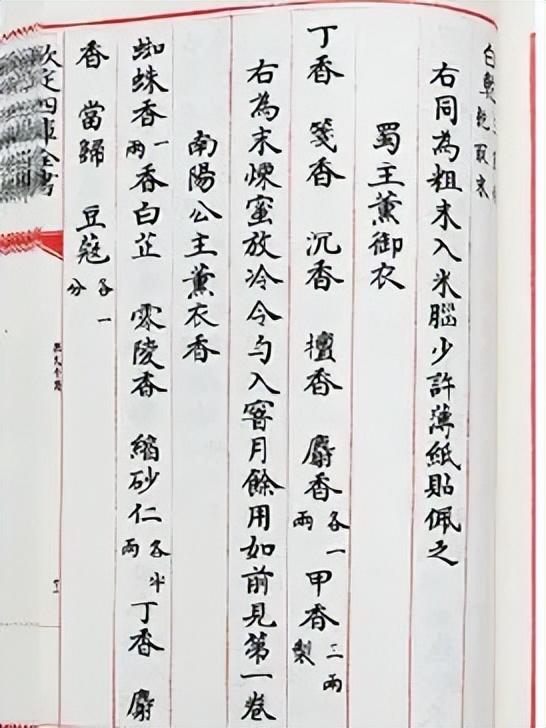 乾取末
右同為粗末入米腦少許薄紙貼佩之
蜀主薰御衣
丁香 箋香 沉香 檀香 麝香各一兩 甲香三兩製
右為末煉蜜放冷令勻入窨月餘用如前見第一卷
南陽公主薰衣香
蜘蛛香一兩 香白芷 零陵香 縮砂仁各半兩 丁香 麝
香 當歸 豆蔻各一分
欽定四庫全書